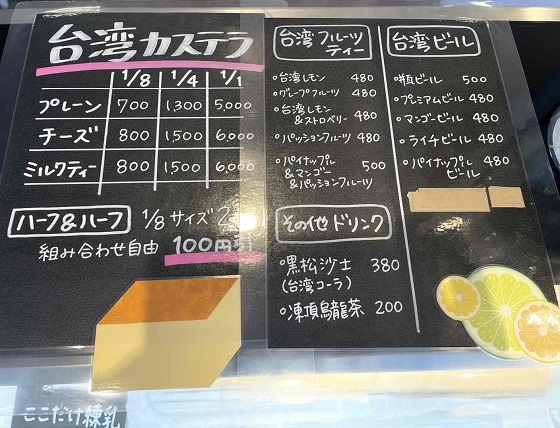 台湾カステラ
1/8 1/4 1/1
プレーン 700 1,300 5,000
チーズ 800 1,500 6,000
ミルクティー 800 1,500 6,000
ハーフ&ハーフ 1/8 サイズ
組み合わせ自由 100円引
台湾フルーツ
ティー
•台湾レモン 480
•グレープフルーツ 480
•台湾レモン
&ストロベリー 480
•パッションフルーツ 480
•パイナップル
&マンゴー 500
&パッションフルーツ
その他ドリンク
•黒松沙士 380
(台湾コーラ)
•凍頂烏龍茶 200
台湾ビール
•瓶ビール 500
•プレミアムビール 480
•マンゴービール 480
•ライチビール 480
•パイナップル 480
ビール
ここだけ練乳